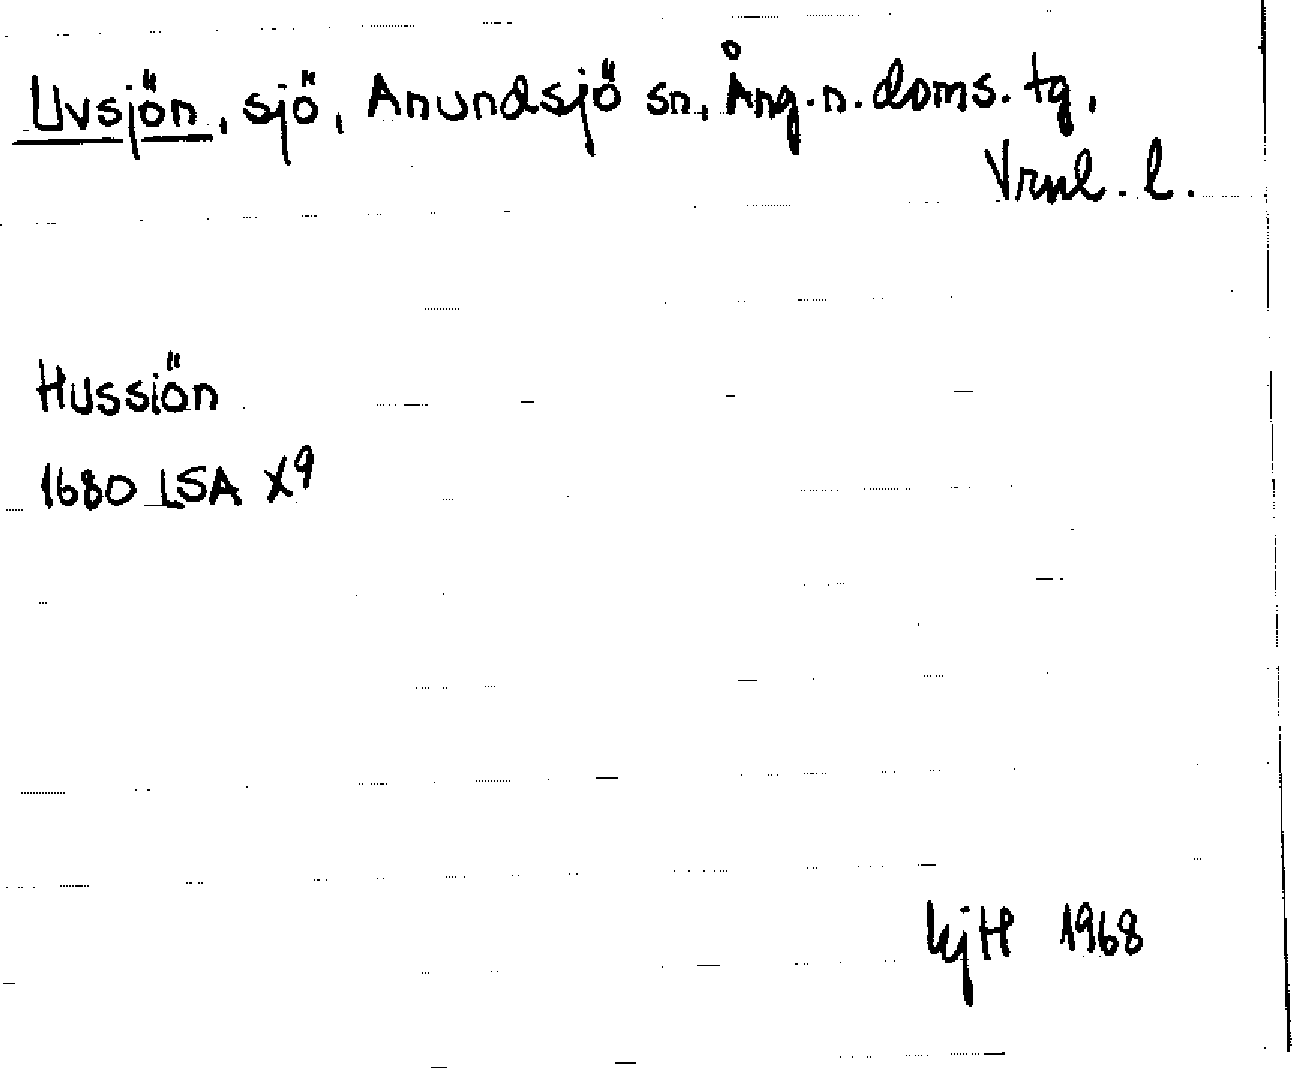 Uvsjön, sjö, Anundsjö sn, Ång.n.doms.tg,
Vrnl.l.
Hussiön
1680 LSA X9
kjH 1968